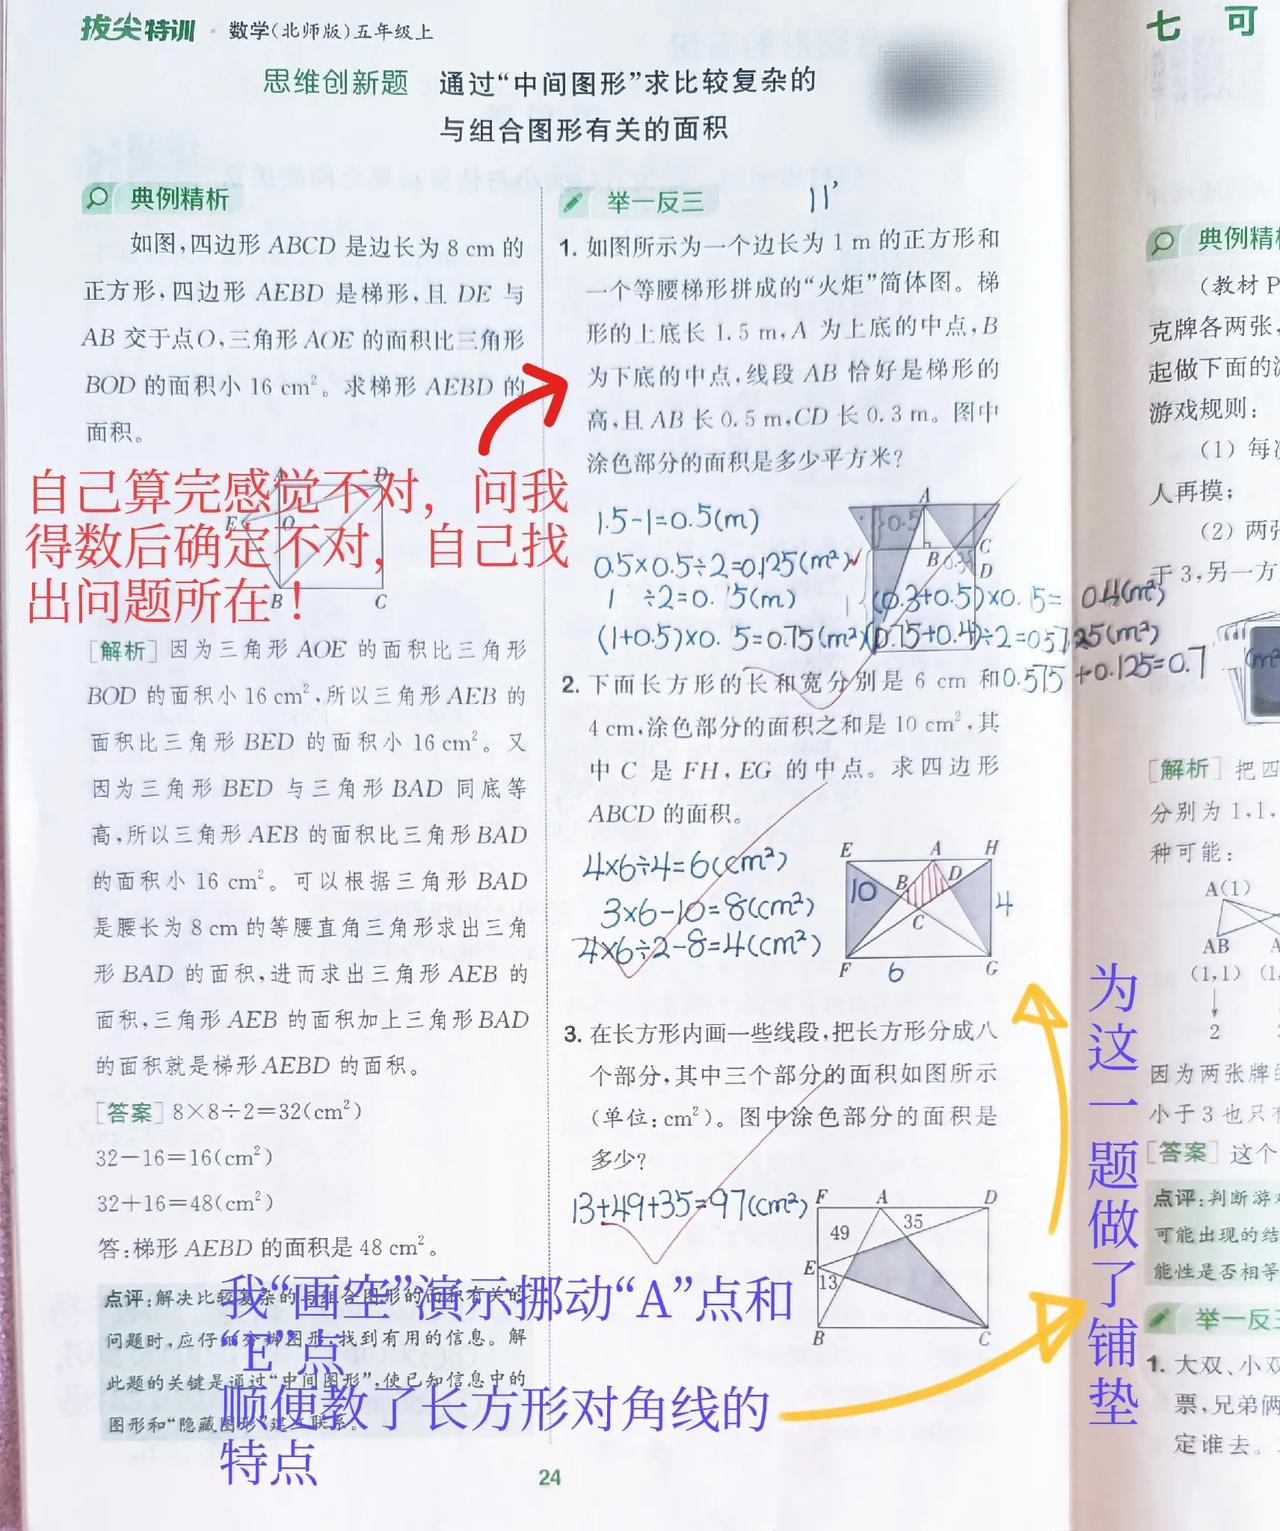 拔尖特训 · 数学(北师版)五年级上
思维创新题 通过“中间图形”求比较复杂的
与组合图形有关的面积
典例精析
如图,四边形 ABCD 是边长为 8 cm 的
正方形,四边形 AEBD 是梯形,且 DE 与
AB 交于点O,三角形 AOE 的面积比三角形
BOD 的面积小 16 cm²。求梯形 AEBD 的
面积。
D
E
O
B
C
自己算完感觉不对，问我
得数后确定不对，自己找
出问题所在！
[解析] 因为三角形 AOE 的面积比三角形
BOD 的面积小 16 cm²,所以三角形 AEB 的
面积比三角形 BED 的面积小 16 cm²。又
因为三角形 BED 与三角形 BAD 同底等
高,所以三角形 AEB 的面积比三角形 BAD
的面积小 16 cm²。可以根据三角形 BAD
是腰长为 8 cm 的等腰直角三角形求出三角
形 BAD 的面积,进而求出三角形 AEB 的
面积,三角形 AEB 的面积加上三角形 BAD
的面积就是梯形 AEBD 的面积。
[答案] 8×8÷2=32(cm²)
32-16=16(cm²)
32+16=48(cm²)
答:梯形 AEBD 的面积是 48 cm²。
点评:解决比较复杂的与组合图形的面积有关的
问题时,应仔细分辨图形,找到有用的信息。解
此题的关键是通过“中间图形”,使已知信息中的
图形和“隐藏图形”建立联系。
我“画空”演示挪动“A”点和
“E”点
顺便教了长方形对角线的
特点
举一反三
11'
1. 如图所示为一个边长为 1 m 的正方形和
一个等腰梯形拼成的“火炬”简体图。梯
形的上底长 1.5 m,A 为上底的中点,B
为下底的中点,线段 AB 恰好是梯形的
高,且 AB 长 0.5 m,CD 长 0.3 m。图中
涂色部分的面积是多少平方米?
1.5-1=0.5(m)
0.5×0.5÷2=0.125(m²)
A
0.5
B
C
D
2. 下面长方形的长和宽分别是 6 cm 和
4 cm,涂色部分的面积之和是 10 cm²,其
中 C 是 FH,EG 的中点。求四边形
ABCD 的面积。
+0.125=0.7
4×6÷4=6(cm²)
3×6-10=8(cm²)
4×6÷2-8=4(cm²)
E A H
10 B D 4
C
F 6 G
3. 在长方形内画一些线段,把长方形分成八
个部分,其中三个部分的面积如图所示
(单位:cm²)。图中涂色部分的面积是
多少?
13+49+35=97(cm²)
F A D
49 35
E 13
B C
为这一题做了铺垫
24
七 可
典例精
(教材 P
克牌各两张
起做下面的
游戏规则:
(1) 每
人再摸;
(2) 两
于 3,另一方
[解析] 把四
分别为 1,1,
种可能:
A(1)
AB
(1,1) (1,
2
因为两张牌
小于 3 也只
[答案] 这个
点评:判断游
可能出现的结
能性是否相等
举一反
1. 大双、小双
票,兄弟俩
定谁去。